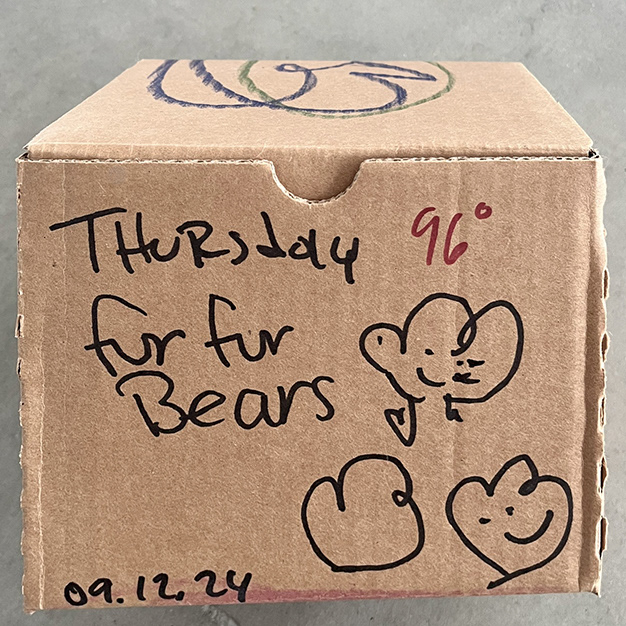 THURSday 96°
fur fur
Bears
09.12.24